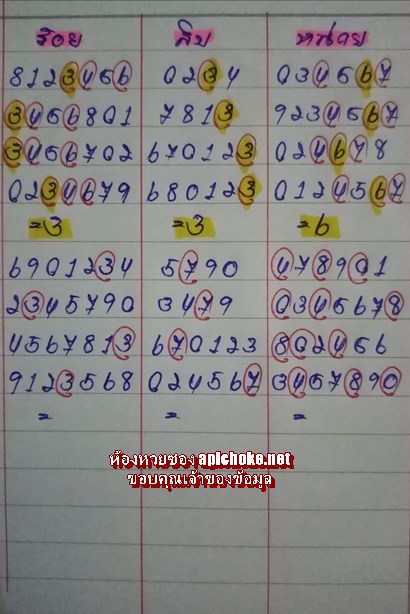 ร้อย สิบ หน่วย
8123456 0234 0345667
3456801 7813 9234567
3456702 670123 024678
0234679 680123 0124567
=3 =3 =6
6901234 5790 478901
2345790 3479 0345678
4567813 670123 802456
9123568 024567 3457890
= = =
ห้องหวยซอง apichoke.net
ขอบคุณเจ้าของข้อมูล